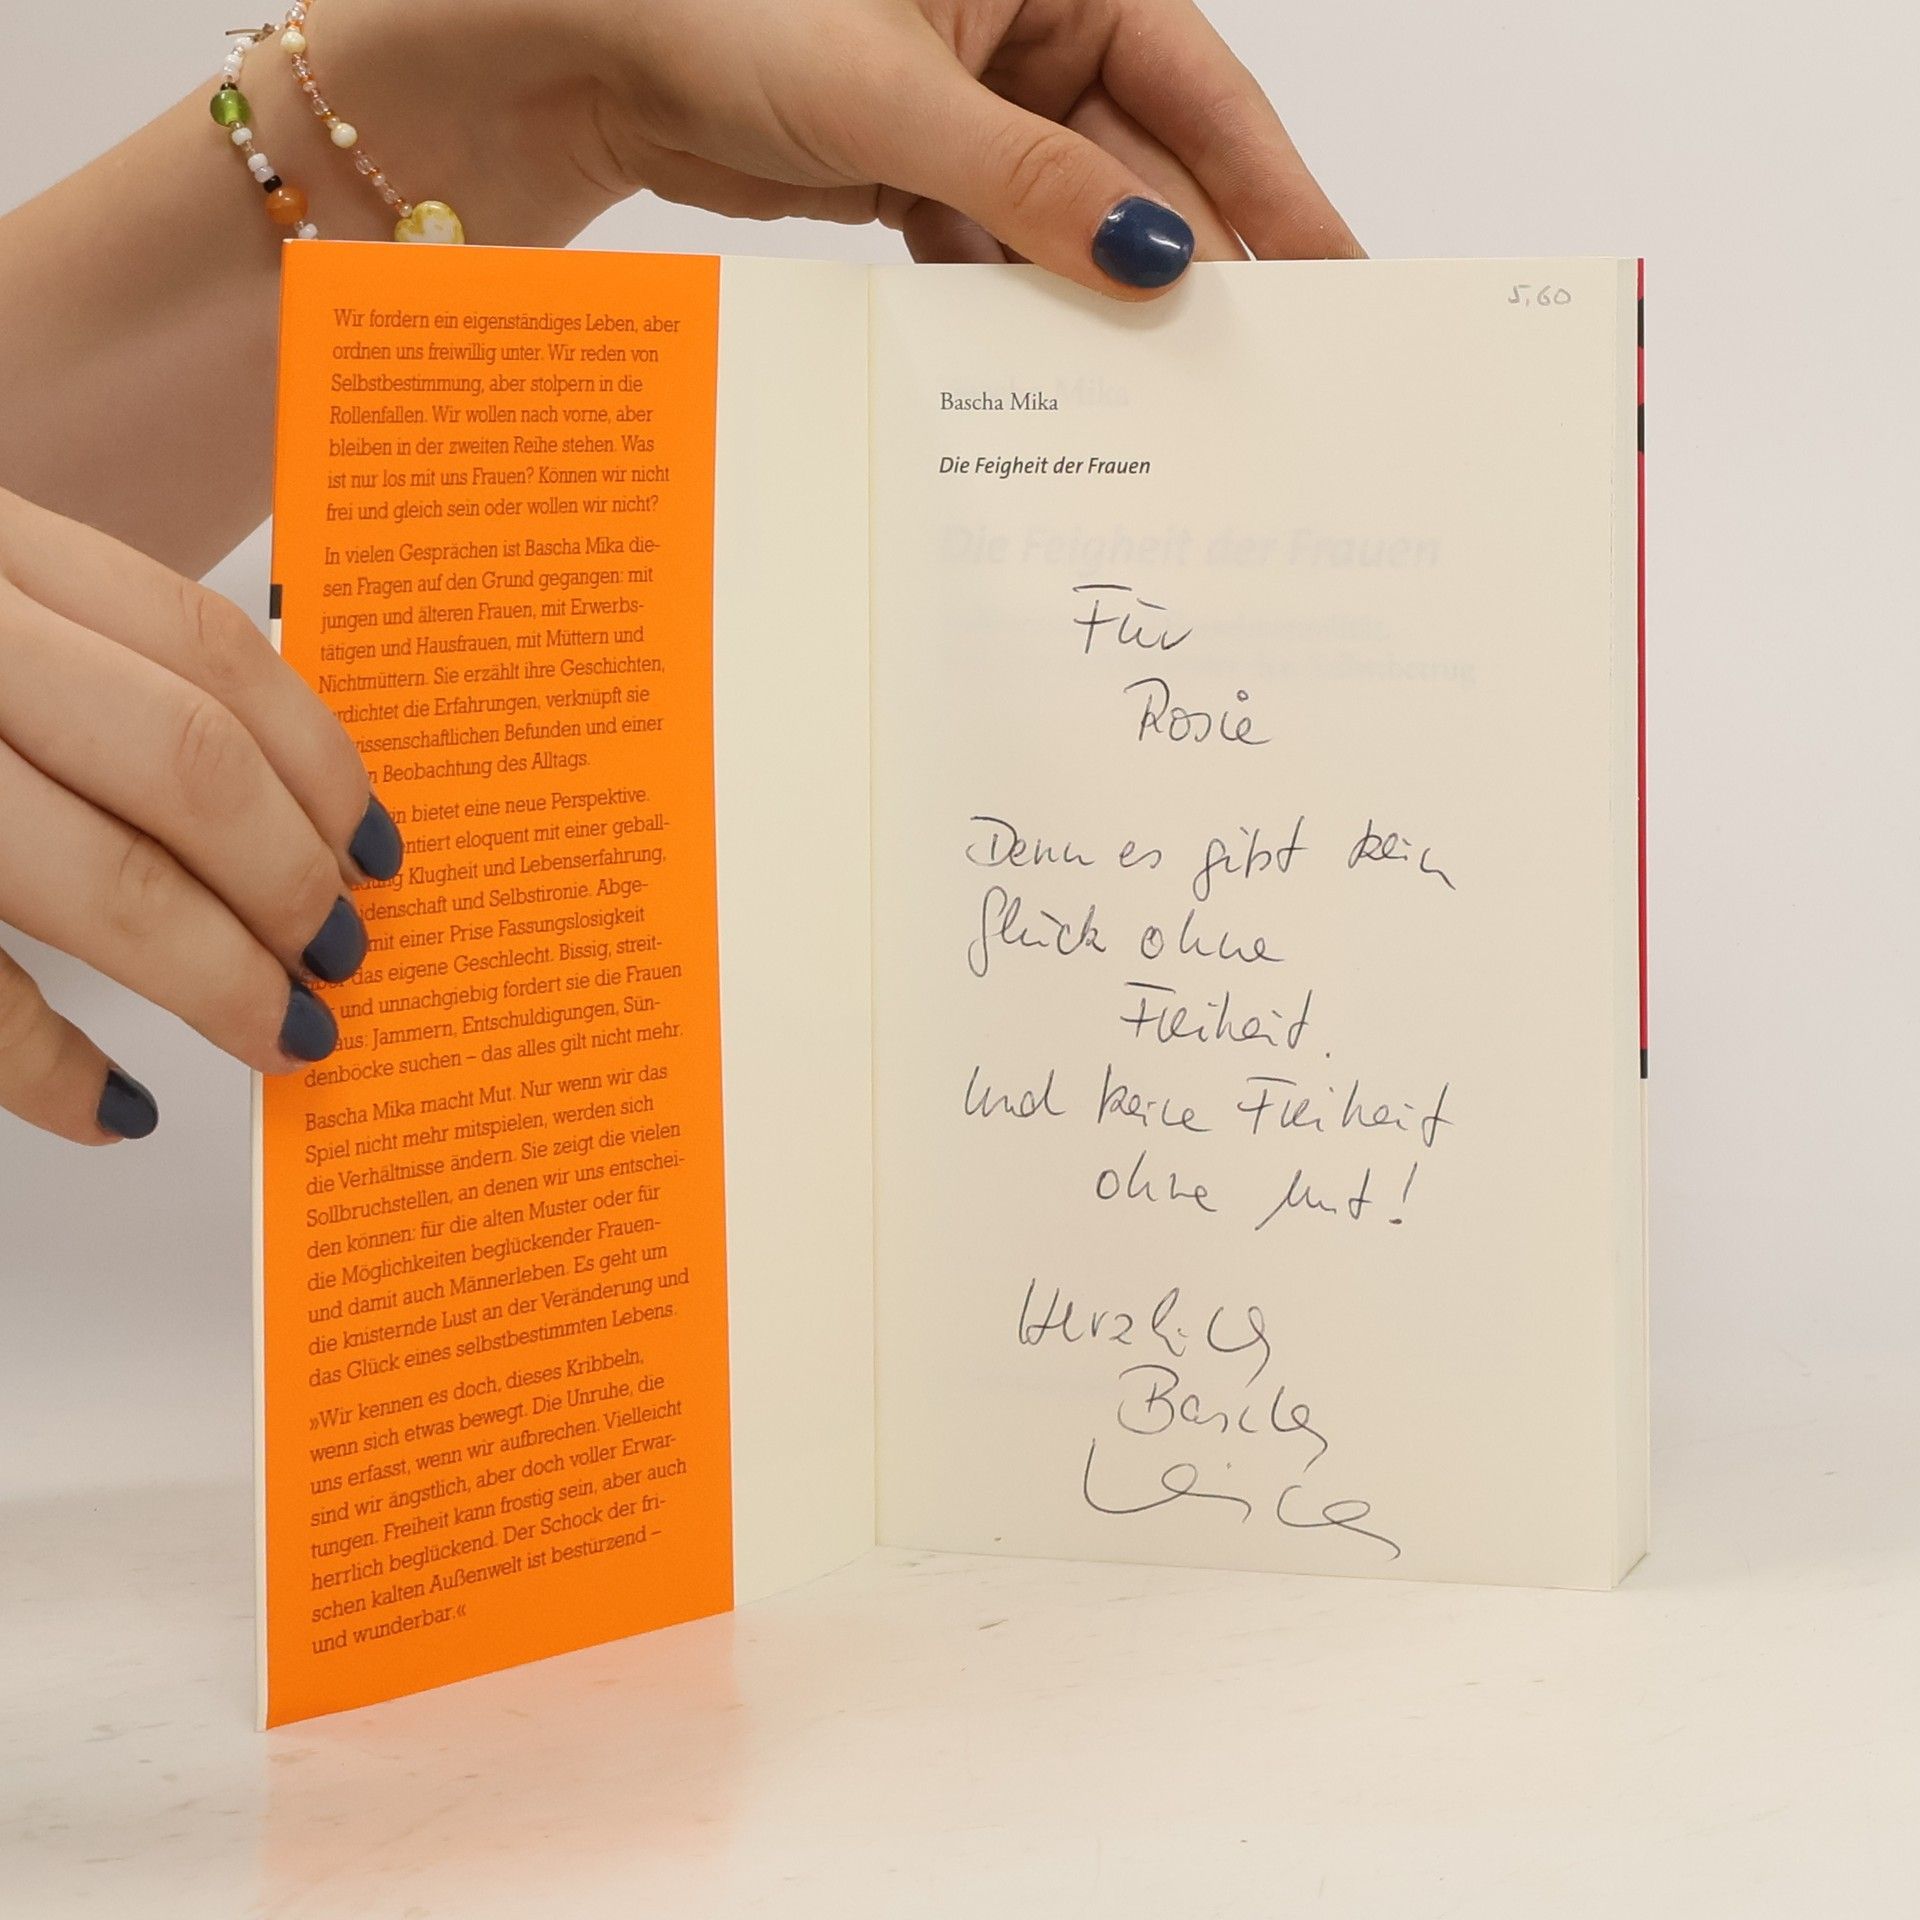 Wir fordern ein eigenständiges Leben, aber
ordnen uns freiwillig unter. Wir reden von
Selbstbestimmung, aber stolpern in die
Rollenfallen. Wir wollen nach vorne, aber
bleiben in der zweiten Reihe stehen. Was
ist nur los mit uns Frauen? Können wir nicht
frei und gleich sein oder wollen wir nicht?
In vielen Gesprächen ist Bascha Mika die-
sen Fragen auf den Grund gegangen: mit
jungen und älteren Frauen, mit Erwerbs-
tätigen und Hausfrauen, mit Müttern und
Nichtmüttern. Sie erzählt ihre Geschichten,
rdichtet die Erfahrungen, verknüpft sie
issenschaftlichen Befunden und einer
n Beobachtung des Alltags.
in bietet eine neue Perspektive.
ntiert eloquent mit einer geball-
dung Klugheit und Lebenserfahrung,
idenschaft und Selbstironie. Abge-
mit einer Prise Fassungslosigkeit
über das eigene Geschlecht. Bissig, streit-
und unnachgiebig fordert sie die Frauen
aus: Jammern, Entschuldigungen, Sün-
denböcke suchen – das alles gilt nicht mehr.
Bascha Mika macht Mut. Nur wenn wir das
Spiel nicht mehr mitspielen, werden sich
die Verhältnisse ändern. Sie zeigt die vielen
Sollbruchstellen, an denen wir uns entschei-
den können: für die alten Muster oder für
die Möglichkeiten beglückender Frauen-
und damit auch Männerleben. Es geht um
die knisternde Lust an der Veränderung und
das Glück eines selbstbestimmten Lebens.
»Wir kennen es doch, dieses Kribbeln,
wenn sich etwas bewegt. Die Unruhe, die
uns erfasst, wenn wir aufbrechen. Vielleicht
sind wir ängstlich, aber doch voller Erwar-
tungen. Freiheit kann frostig sein, aber auch
herrlich beglückend. Der Schock der fri-
schen kalten Außenwelt ist bestürzend –
und wunderbar.«
5,60
Bascha Mika
Die Feigheit der Frauen
Für
Rosie
Denn es gibt kein
Glück ohne
Freiheit.
Und keine Freiheit
ohne Mut!
Herzlich
Bascha
Mika